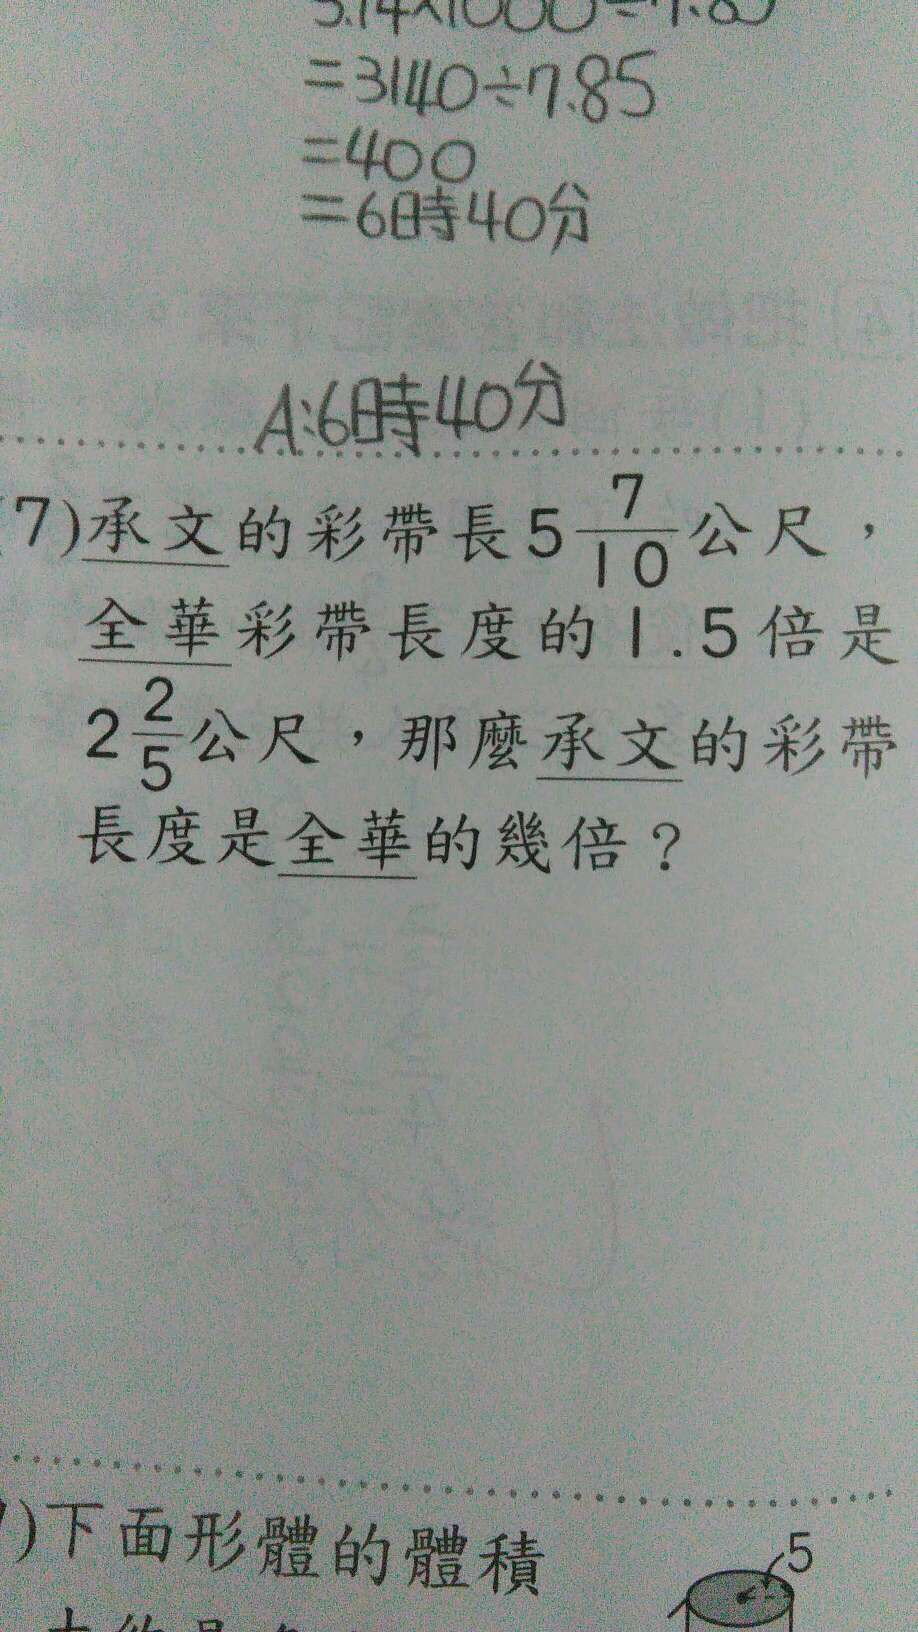 3.14×1000÷7.85
=3140÷7.85
=400
=6時40分
A:6時40分
(7)承文的彩帶長5 7/10公尺，
全華彩帶長度的1.5倍是
2 2/5公尺，那麼承文的彩帶
長度是全華的幾倍？
)下面形體的體積
5